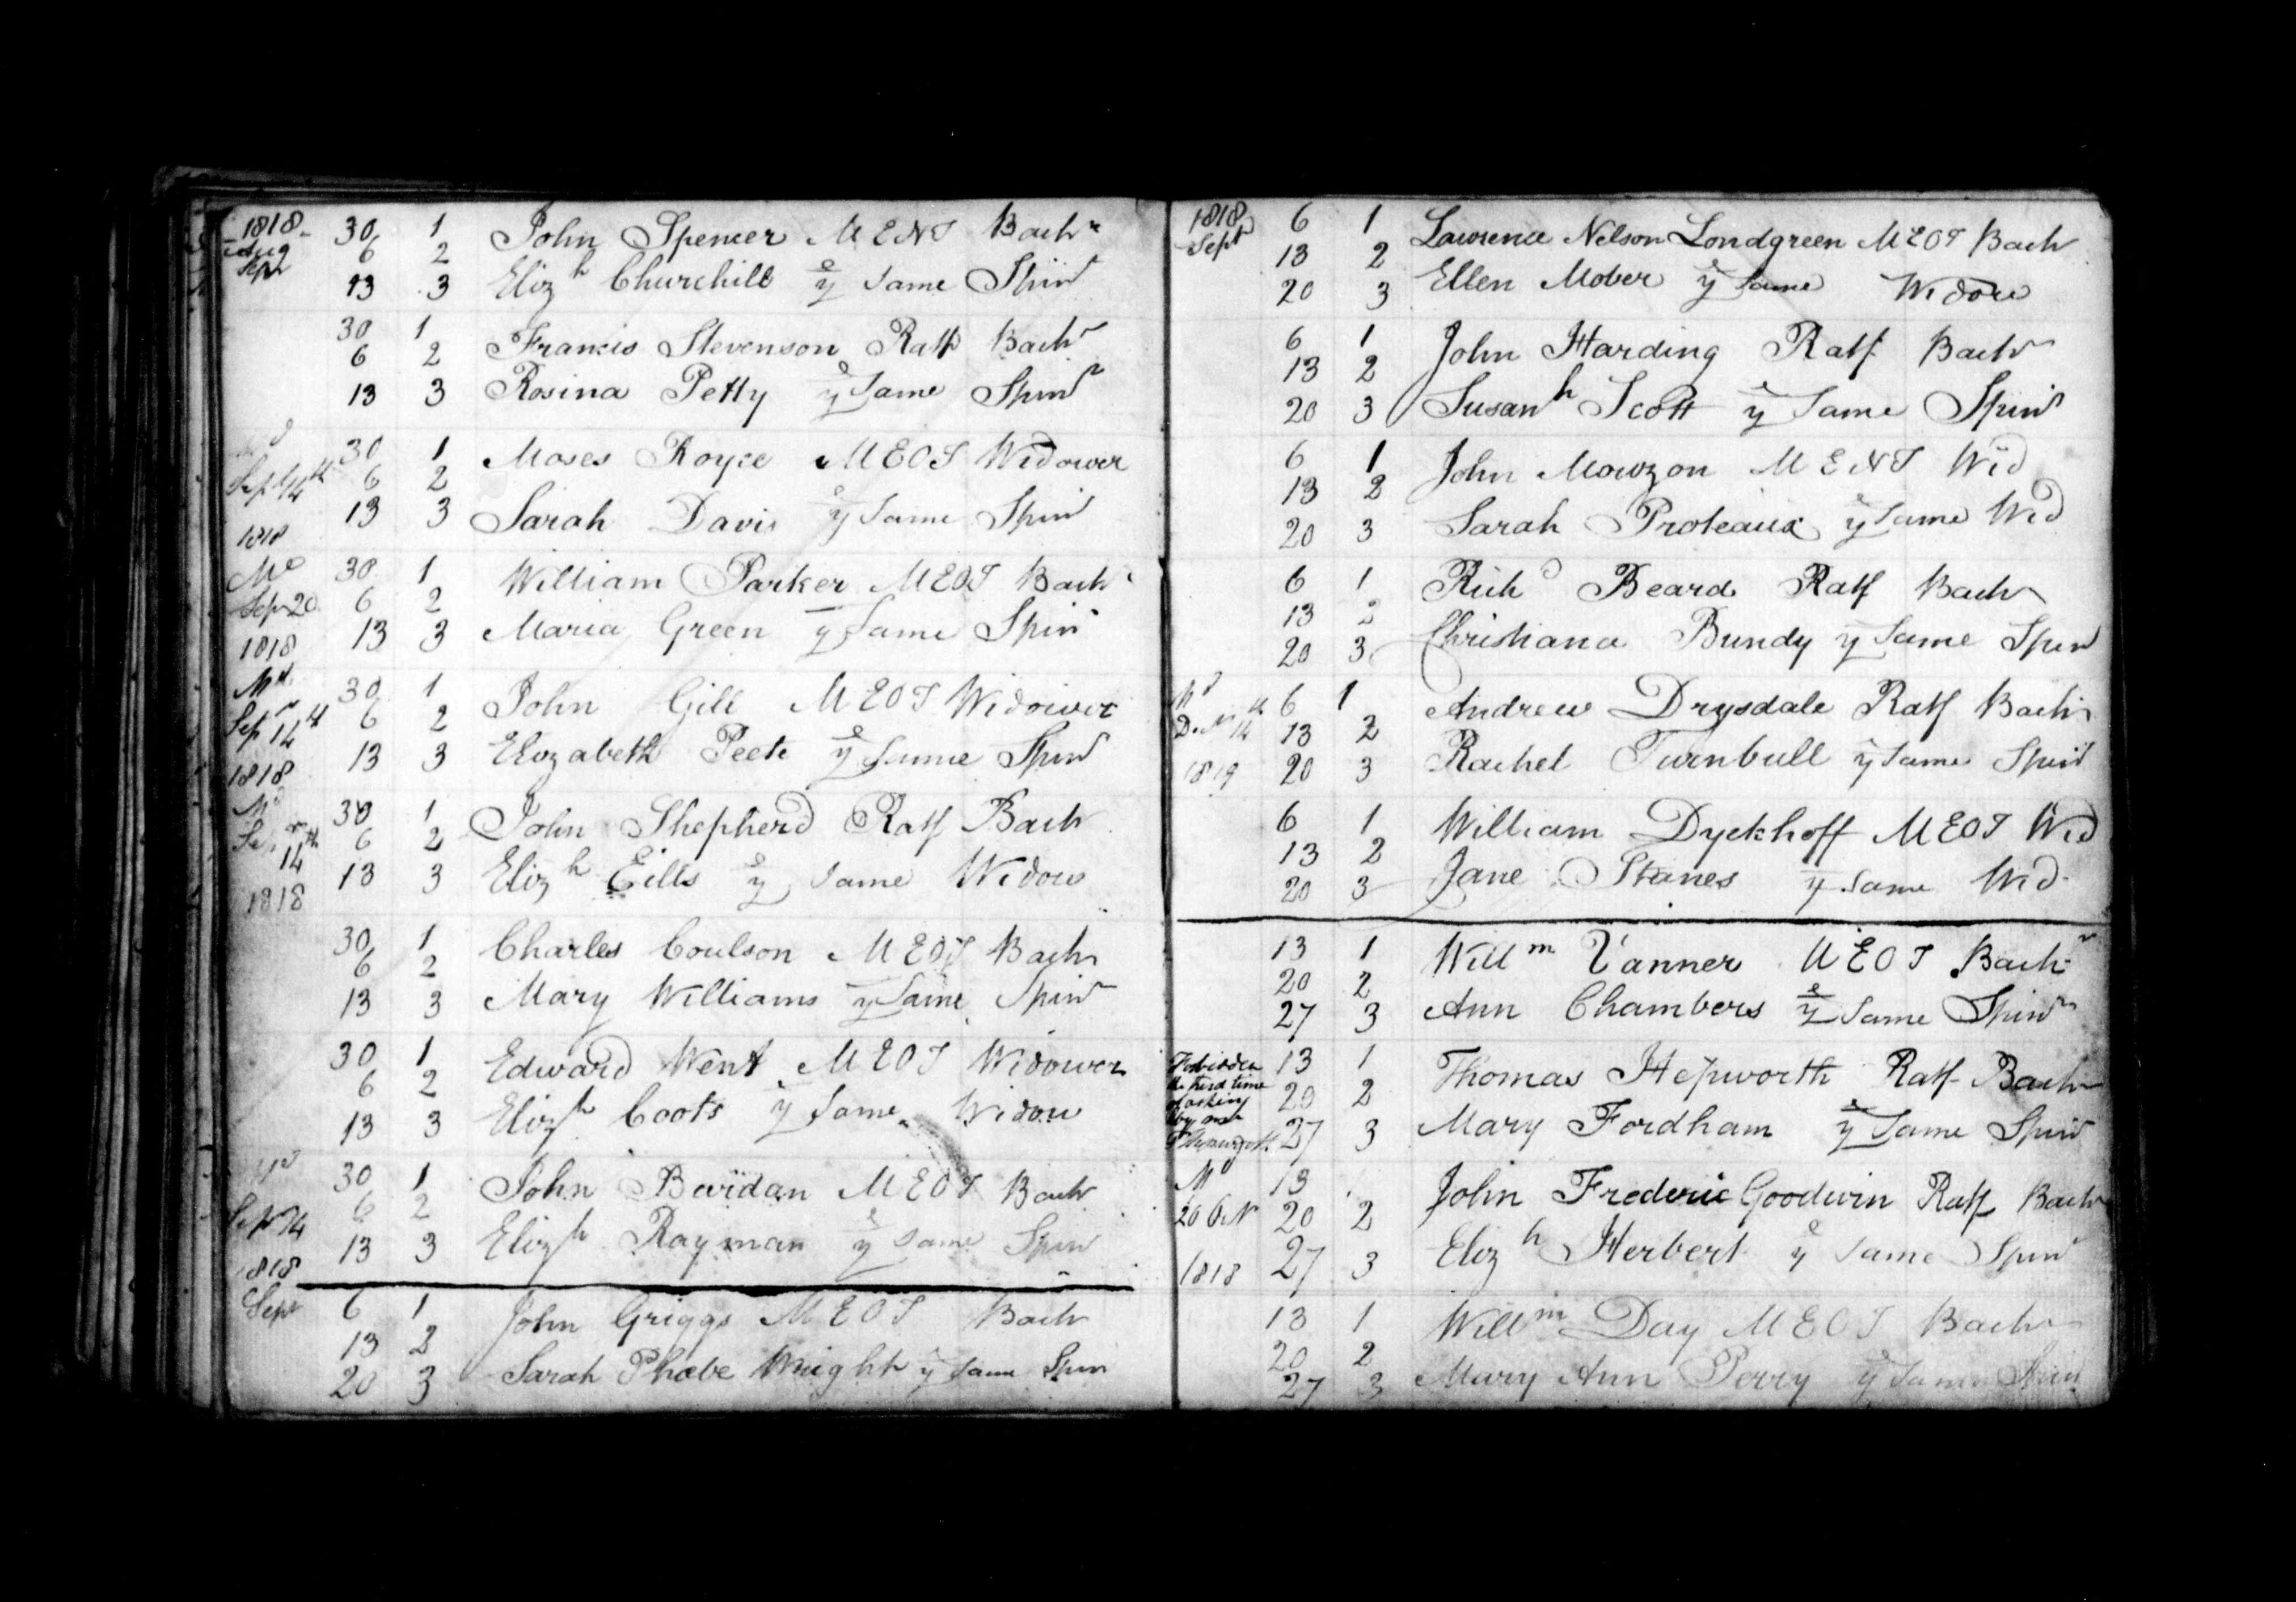 1818 Aug 30 1 John Spencer M E N T Bachr
Sepr 6 2
13 3 Elizh Churchill ye Same Spinr
30 1 Francis Stevenson Ratf Bachr
6 2
13 3 Rosina Petty ye Same Spinr
30 1 Moses Royce M E O T Widower
Sepr 14th 6 2
1818 13 3 Sarah Davis ye Same Spinr
Md 30 1 William Parker M E O T Bachr
Sepr 20 6 2
1818 13 3 Maria Green ye Same Spinr
Md 30 1 John Gill M E O T Widower
Sepr 14th 6 2
1818 13 3 Elizabeth Peete ye Same Spinr
Md 30 1 John Shepherd Ratf Bachr
Sepr 14th 6 2
1818 13 3 Elizh Eills ye Same Widow
30 1 Charles Coulson M E O T Bachr
6 2
13 3 Mary Williams ye Same Spinr
30 1 Edward Went M E O T Widower
6 2
13 3 Elizh Coots ye Same Widow
Md 30 1 John Bevidan M E O T Bachr
Sepr 14 6 2
1818 13 3 Elizh Rayman ye Same Spinr
Sepr 6 1 John Griggs M E O T Bachr
13 2
20 3 Sarah Phœbe Wright ye Same Spinr
1818 Sept 6 1 Lawrence Nelson Londgreen M E O T Bachr
13 2
20 3 Ellen Mober ye Same Widow
6 1 John Harding Ratf Bachr
13 2
20 3 Susanh Scott ye Same Spinr
6 1 John Mowzon M E N T Wid
13 2
20 3 Sarah Proteaux ye Same Wid
6 1 Richd Beard Ratf Bachr
13 2
20 3 Christiana Bundy ye Same Spinr
Md 6 1 Andrew Drysdale Ratf Bachr
14 13 2
1819 20 3 Rachel Turnbull ye Same Spinr
6 1 William Dyckhoff M E O T Wid
13 2
20 3 Jane Stanes ye Same Wid
13 1 Willm Vanner M E O T Bachr
20 2
27 3 Ann Chambers ye Same Spinr
Forbidden 13 1 Thomas Hepworth Ratf Bachr
the third time 20 2
of asking
by me 27 3 Mary Fordham ye Same Spinr
Md 13 John Frederic Goodwin Ratf Bachr
20 Oct 20 2
1818 27 3 Elizh Herbert ye Same Spinr
13 1 Willm Day M E O T Bachr
20 2
27 3 Mary Ann Perry ye Same Spinr